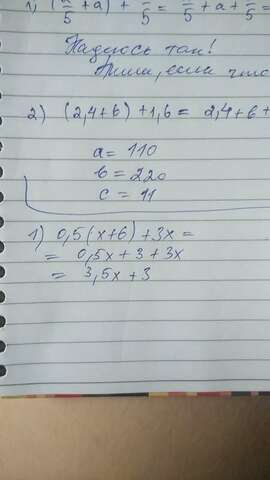 1) (a/5 + a) + /5 = /5 + a + /5 =
Надеюсь так!
Пиши, если что
2) (2,4+b)+1,6 = 2,4+b+
a = 110
b = 220
c = 11
1) 0,5(x+6)+3x =
= 0,5x + 3 + 3x
= 3,5x + 3